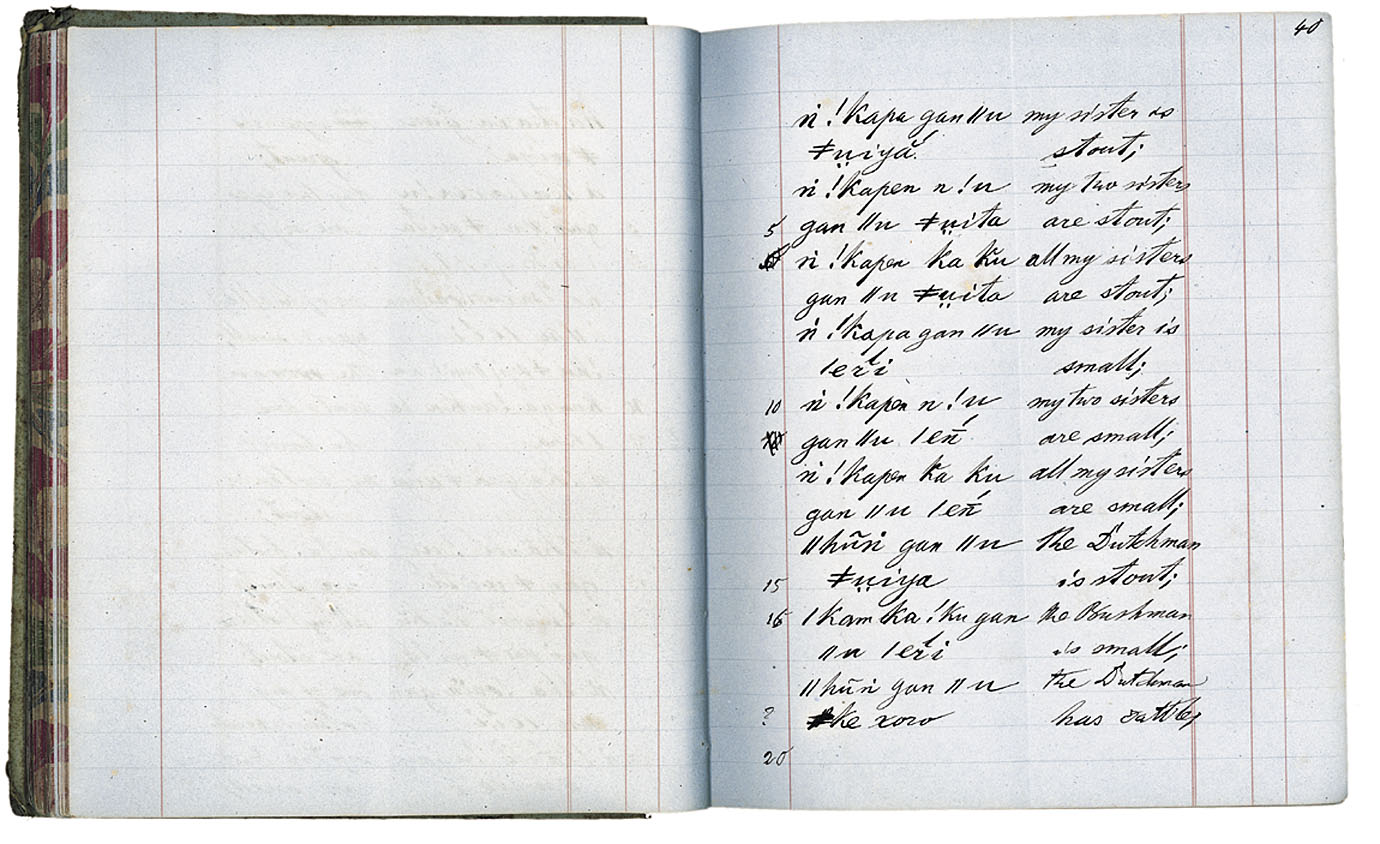 40
ṅ !kapa gan ǁu my sister is
ǂụ̈iyá. stout;
ṅ !kapen n !u my two sisters
5 gan ǁu ǂụ̈ita are stout;
ṅ !kapen ka ku all my sisters
gan ǁu ǂụ̈ita are stout;
ṅ !kapa gan ǁu my sister is
ǀeřĭ small;
10 ṅ !kapen n !u my two sisters
gan ǁu ǀeń̄ are small;
ṅ !kapen ka ku all my sisters
gan ǁu ǀeń̄ are small;
ǁhũṅ gan ǁu the Dutchman
15 ǂụ̈iya is stout;
16 ǀkam ka !ku gan the Bushman
ǁu ǀeřĭ is small;
ǁhũṅ gan ǁu the Dutchman
? ǂke xoro has cattle;
20